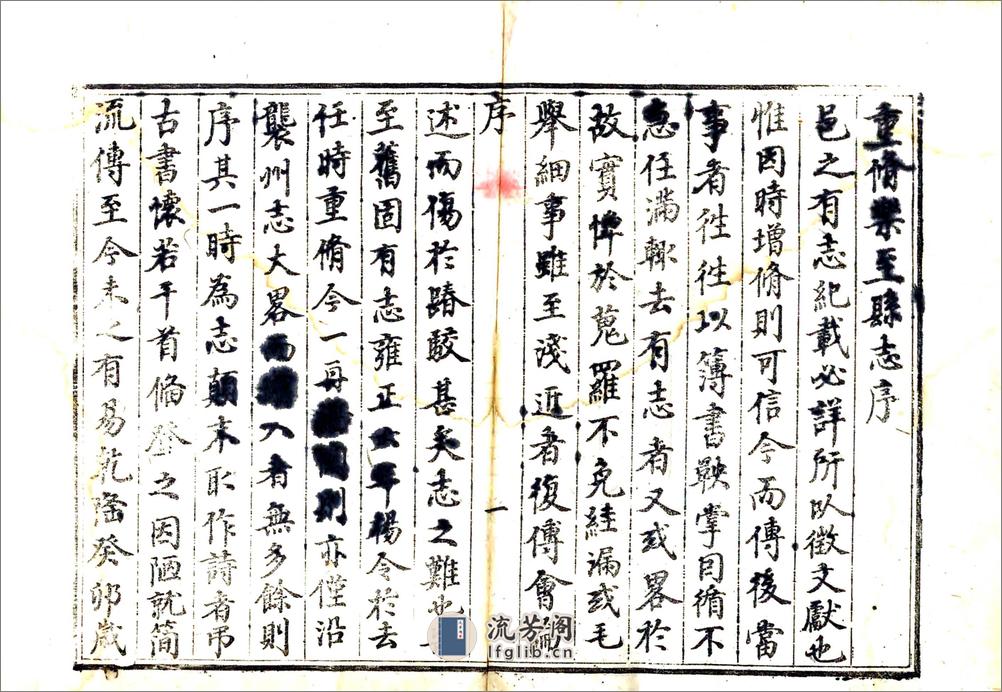 重脩樂至縣志序
邑之有志紀載必詳所以徵文獻也
惟因時增脩則可信今而傳後當
事者徃徃以簿書鞅掌因循不
急任滿輙去有志者又或畧於
故實惮於蒐羅不免絓漏或毛
舉細事雖至淺近者復傅會論
序
一
述而傷於踳駮甚矣志之難也
至舊固有志雍正年楊令於去
任時重脩今一冊則亦僅沿
襲州志大畧而入者無多餘則
序其一時為志顛末取作詩者弔
古書懷若干首偹登之因陋就簡
流傳至今未之有易乾隆癸卯歲
流芳阁
lfglib.cn